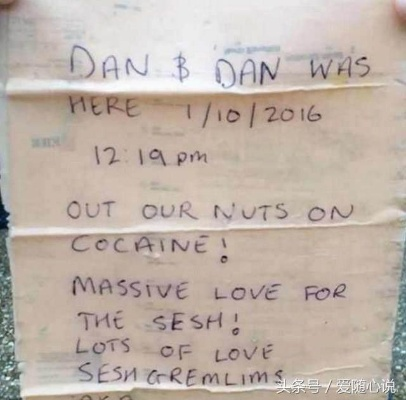 DAN & DAN WAS
HERE 1/10/2016
12:19 pm
OUT OUR NUTS ON
COCAINE!
MASSIVE LOVE FOR
THE SESH!
LOTS OF LOVE
SESH GREMLIMS
头条号 / 爱随心说